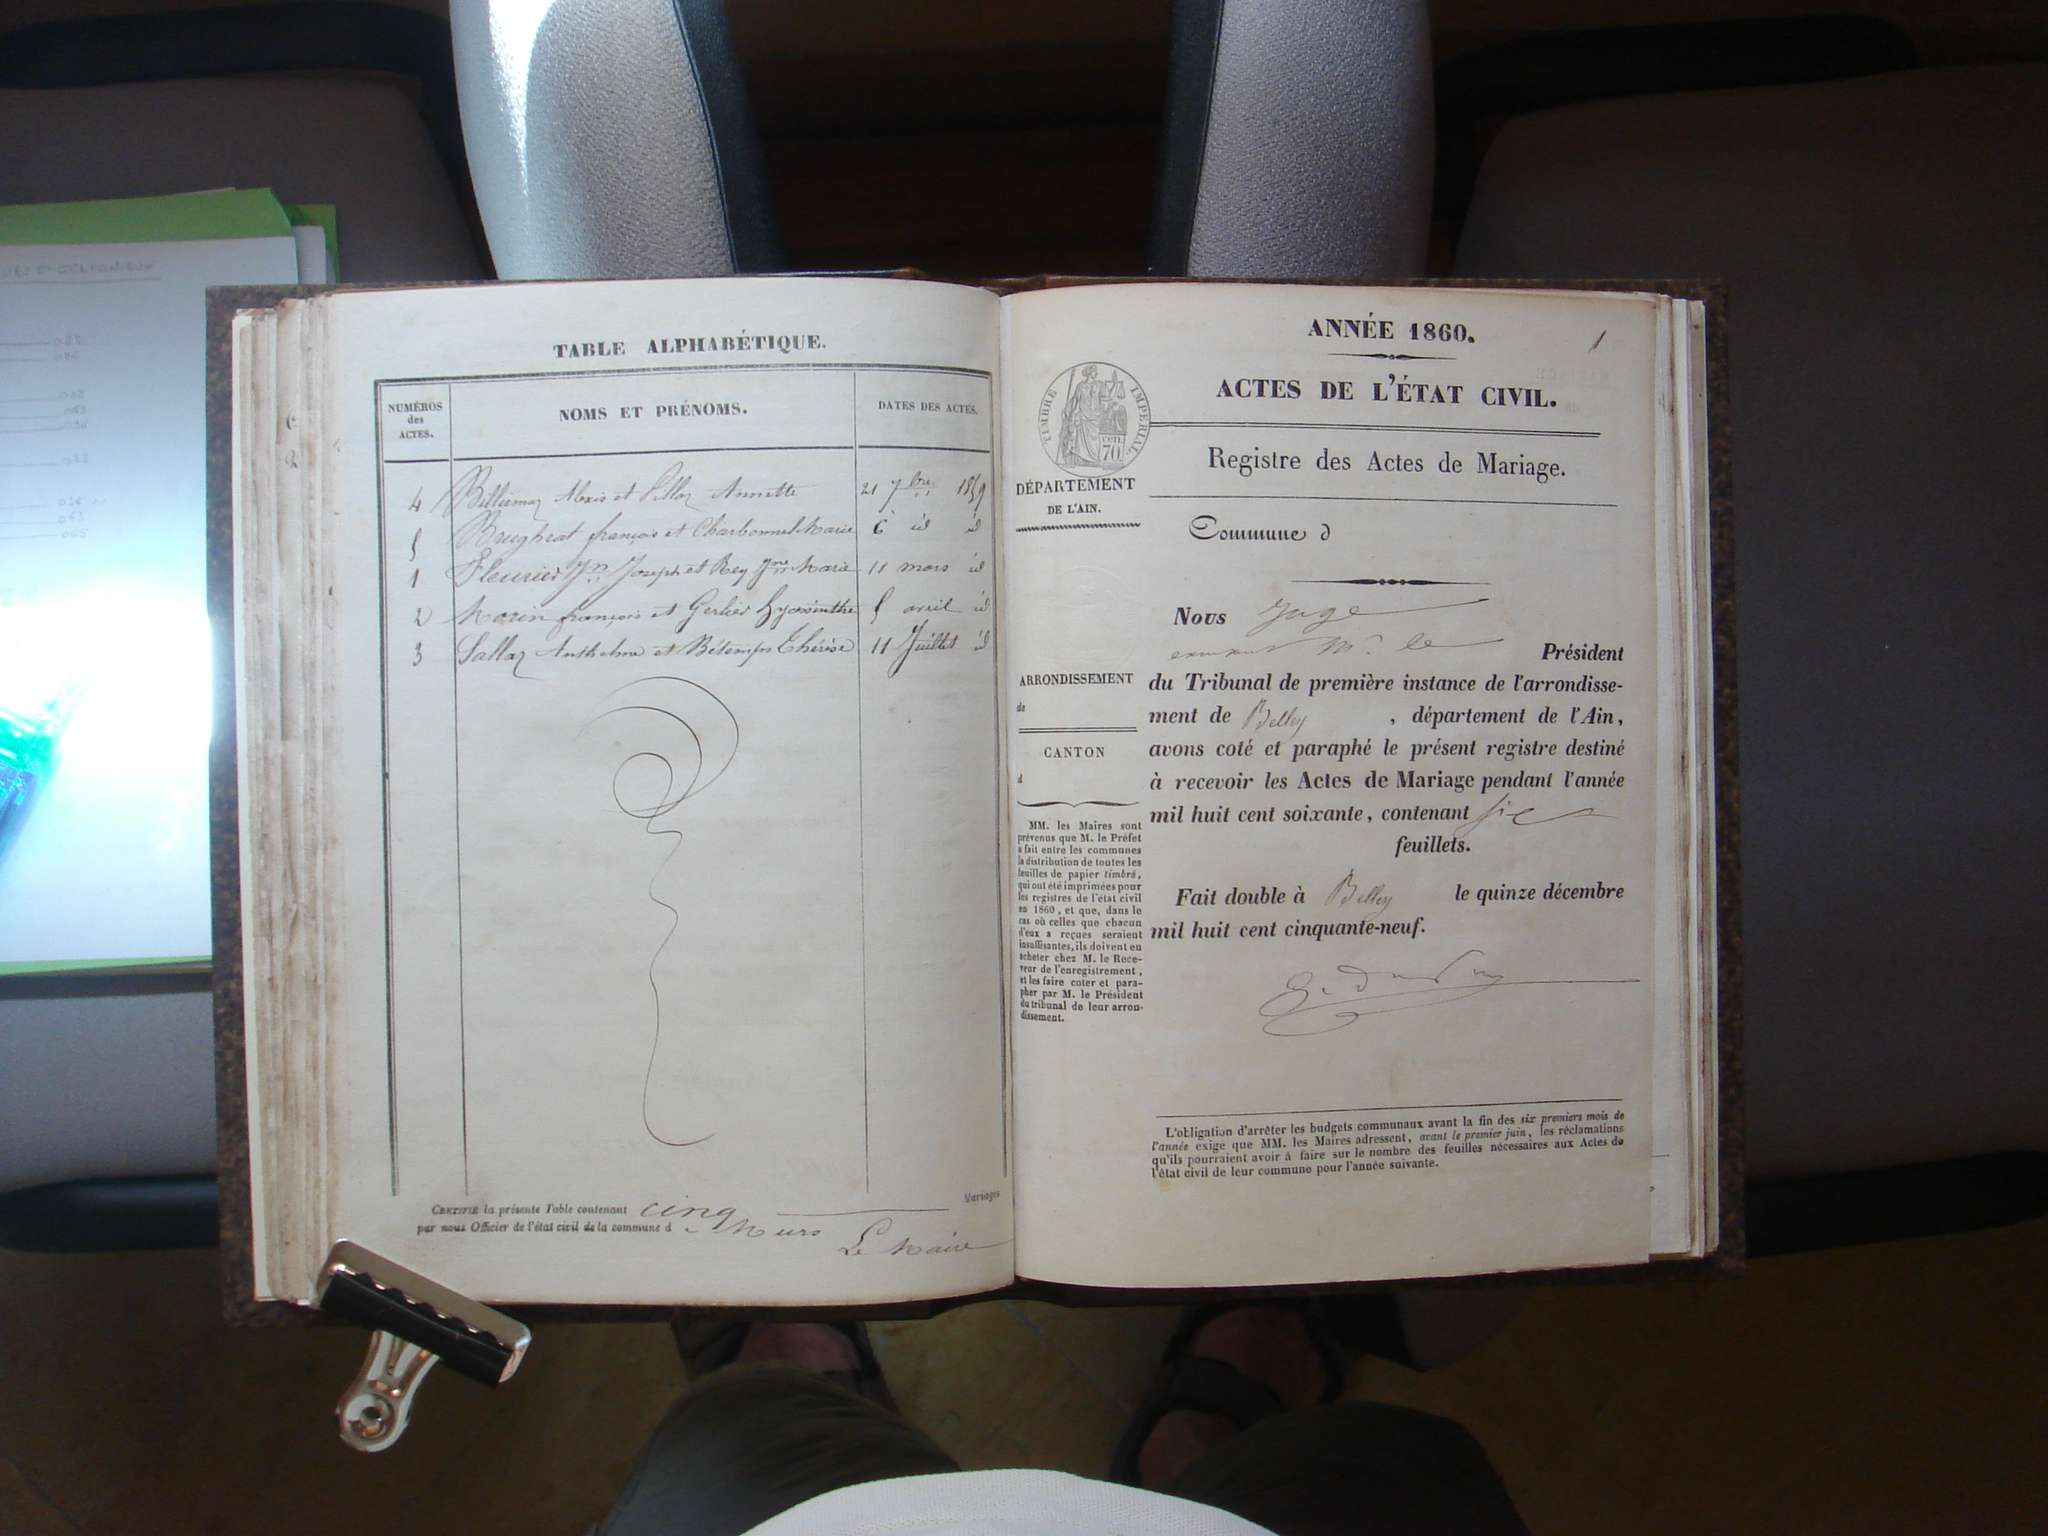 TABLE ALPHABÉTIQUE.
NUMÉROS
des
ACTES.
NOMS ET PRÉNOMS.
DATES DES ACTES.
4 Billiemaz Alexis et Pillaz Annette 21 7bre 1859
5 Brugheat françois et Charbonnel Marie 6 id id
1 Fleurier Jn Joseph et Rey Jne Marie 11 mars id
2 Morin françois et Gerlier Hyacinthe 5 avril id
3 Sallaz Anthelme et Bétemps Thérèse 11 Juillet id
CERTIFIÉ la présente Table contenant cinq Mariages
par nous Officier de l'état civil de la commune d
Le Maire
1
ANNÉE 1860.
ACTES DE L'ÉTAT CIVIL.
TIMBRE IMPERIAL
cen.
70
DÉPARTEMENT
DE L'AIN.
Registre des Actes de Mariage.
Commune d
ARRONDISSEMENT
de
CANTON
d
MM. les Maires sont
prévenus que M. le Préfet
a fait entre les communes
la distribution de toutes les
feuilles de papier timbré,
qui ont été imprimées pour
les registres de l'état civil
en 1860, et que, dans le
cas où celles que chacun
d'eux a reçues seraient
insuffisantes, ils doivent en
acheter chez M. le Rece-
veur de l'enregistrement,
et les faire coter et para-
pher par M. le Président
du tribunal de leur arron-
dissement.
Nous Juge
Mr le Président
du Tribunal de première instance de l'arrondisse-
ment de Belley, département de l'Ain,
avons coté et paraphé le présent registre destiné
à recevoir les Actes de Mariage pendant l'année
mil huit cent soixante, contenant six
feuillets.
Fait double à Belley le quinze décembre
mil huit cent cinquante-neuf.
L'obligation d'arrêter les budgets communaux avant la fin des six premiers mois de
l'année exige que MM. les Maires adressent, avant le premier juin, les réclamations
qu'ils pourraient avoir à faire sur le nombre des feuilles nécessaires aux Actes de
l'état civil de leur commune pour l'année suivante.